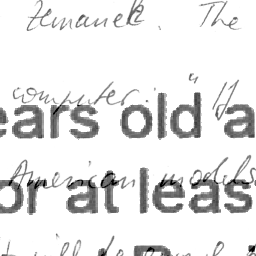 Zemanek. The
computer. " If
ears old a
American models
or at leas